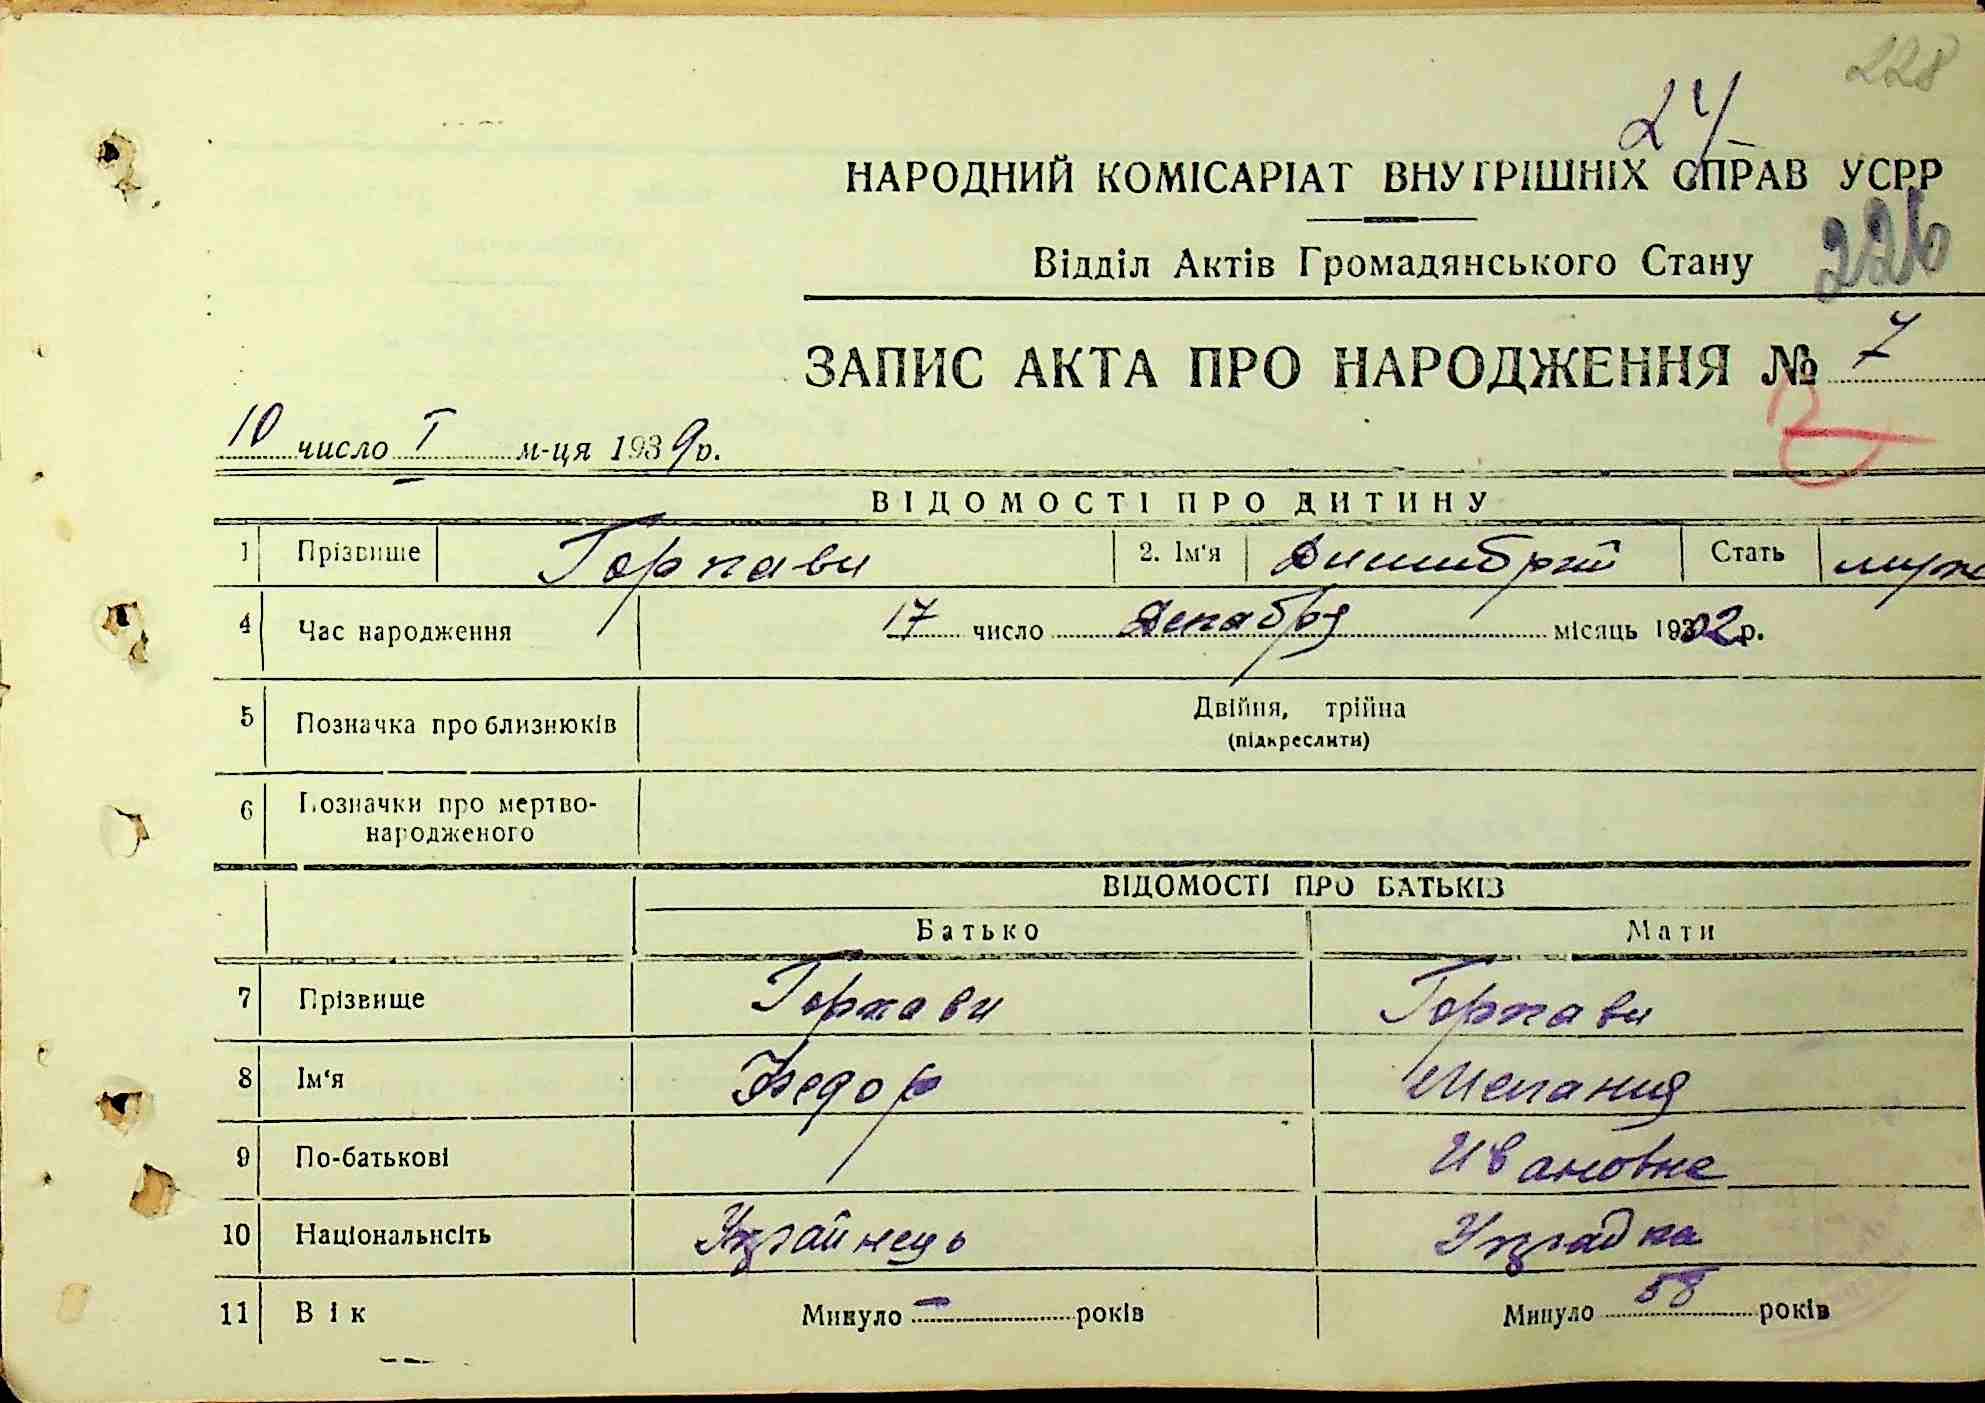 228
24
НАРОДНИЙ КОМІСАРІАТ ВНУТРІШНІХ СПРАВ УСРР
Відділ Актів Громадянського Стану
226
ЗАПИС АКТА ПРО НАРОДЖЕННЯ № 7
10 число I м-ця 1939 р.
ВІДОМОСТІ ПРО ДИТИНУ
1 Прізвише 2. Ім'я Стать
4 Час народження 17 число Декабря місяць 1902 р.
5 Позначка про близнюків Двійня, трійна
(підкреслити)
6 Позначки про мертво-
народженого
ВІДОМОСТІ ПРО БАТЬКІВ
Батько Мати
7 Прізвище
8 Ім'я Федор Мелания
9 По-батькові Ивановна
10 Національнсіть Українець Українка
11 Вік Минуло — років Минуло 58 років